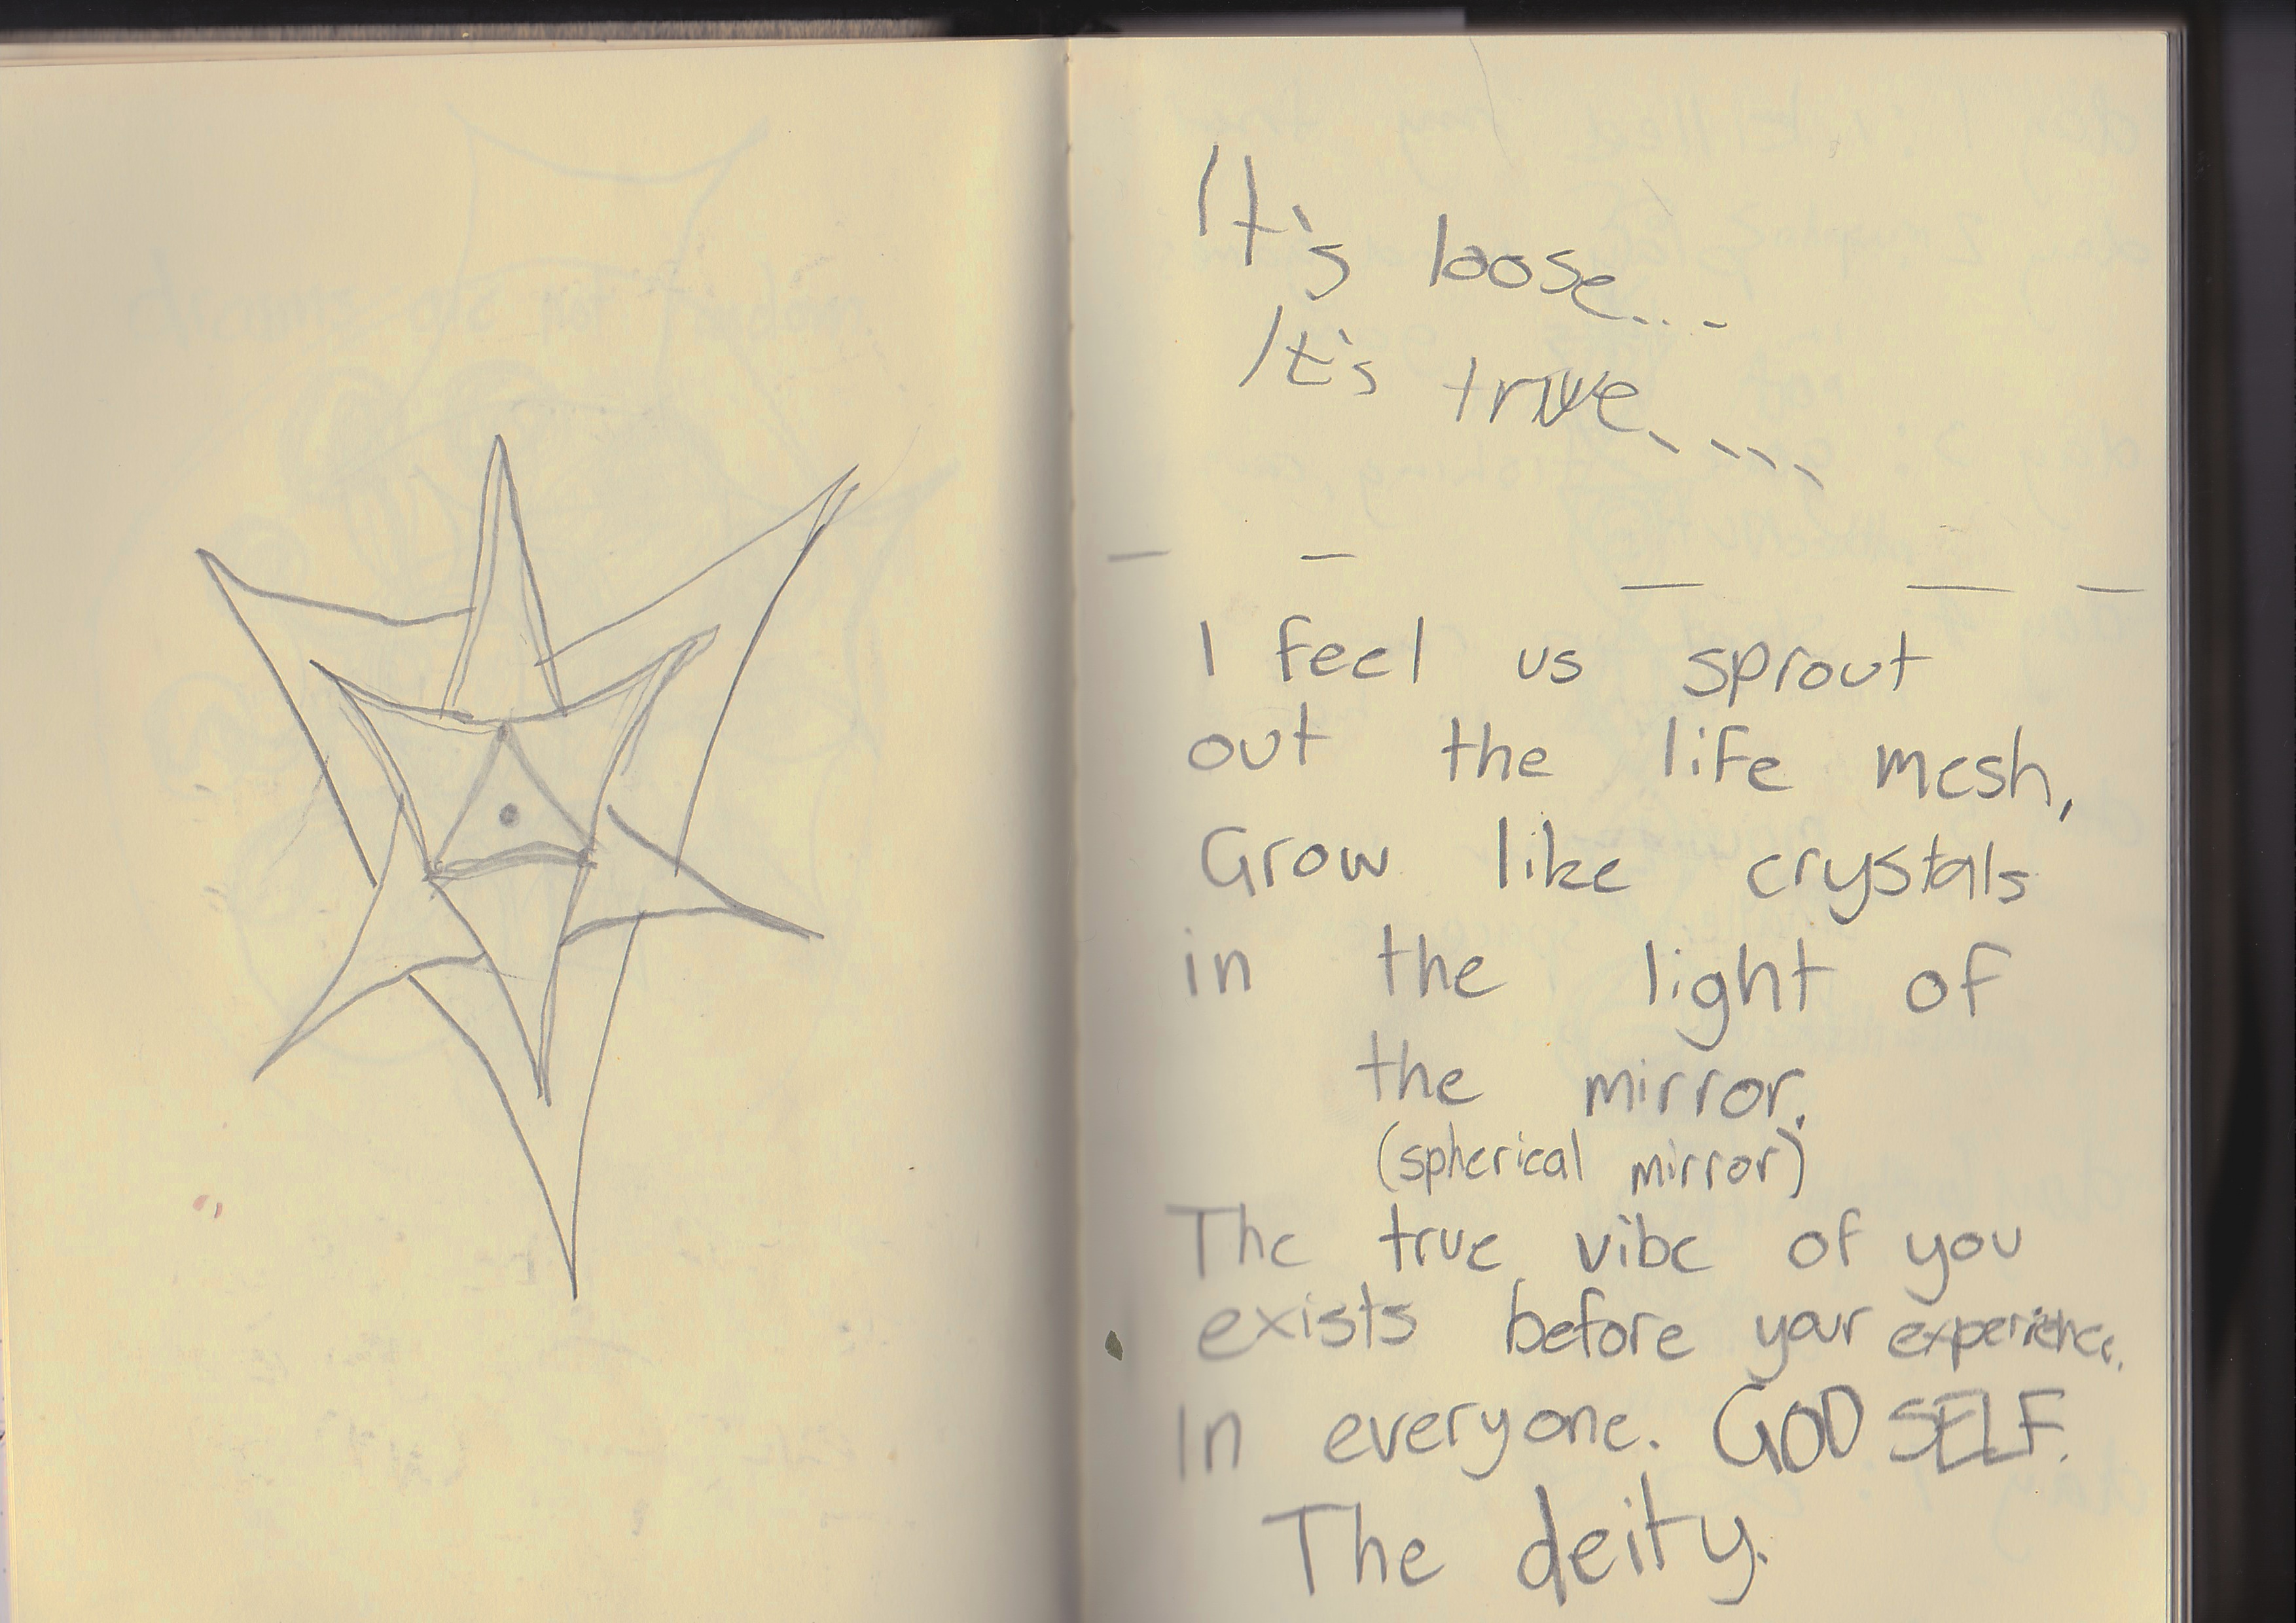 It's loose...
It's true....
I feel us sprout
out the life mesh,
Grow like crystals
in the light of
the mirror.
(spherical mirror)
The true vibe of you
exists before your experience.
In everyone. GOD SELF.
The deity.